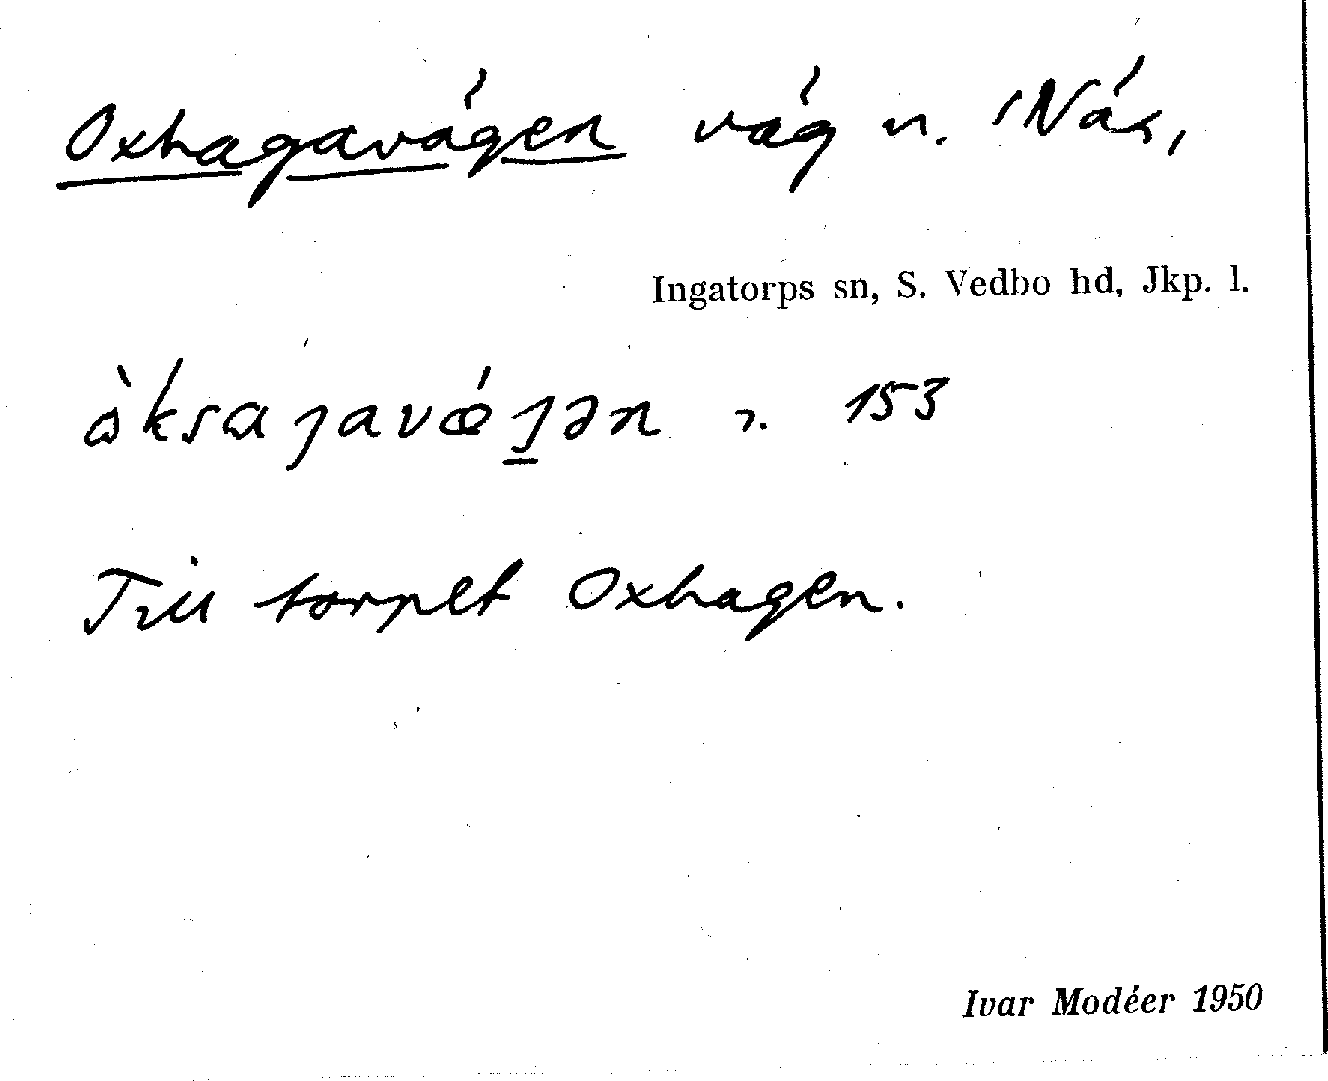 Oxhagavägen väg n. Näs,
Ingatorps sn, S. Vedbo hd, Jkp. l.
153
Till torpet Oxhagen.
Ivar Modéer 1950